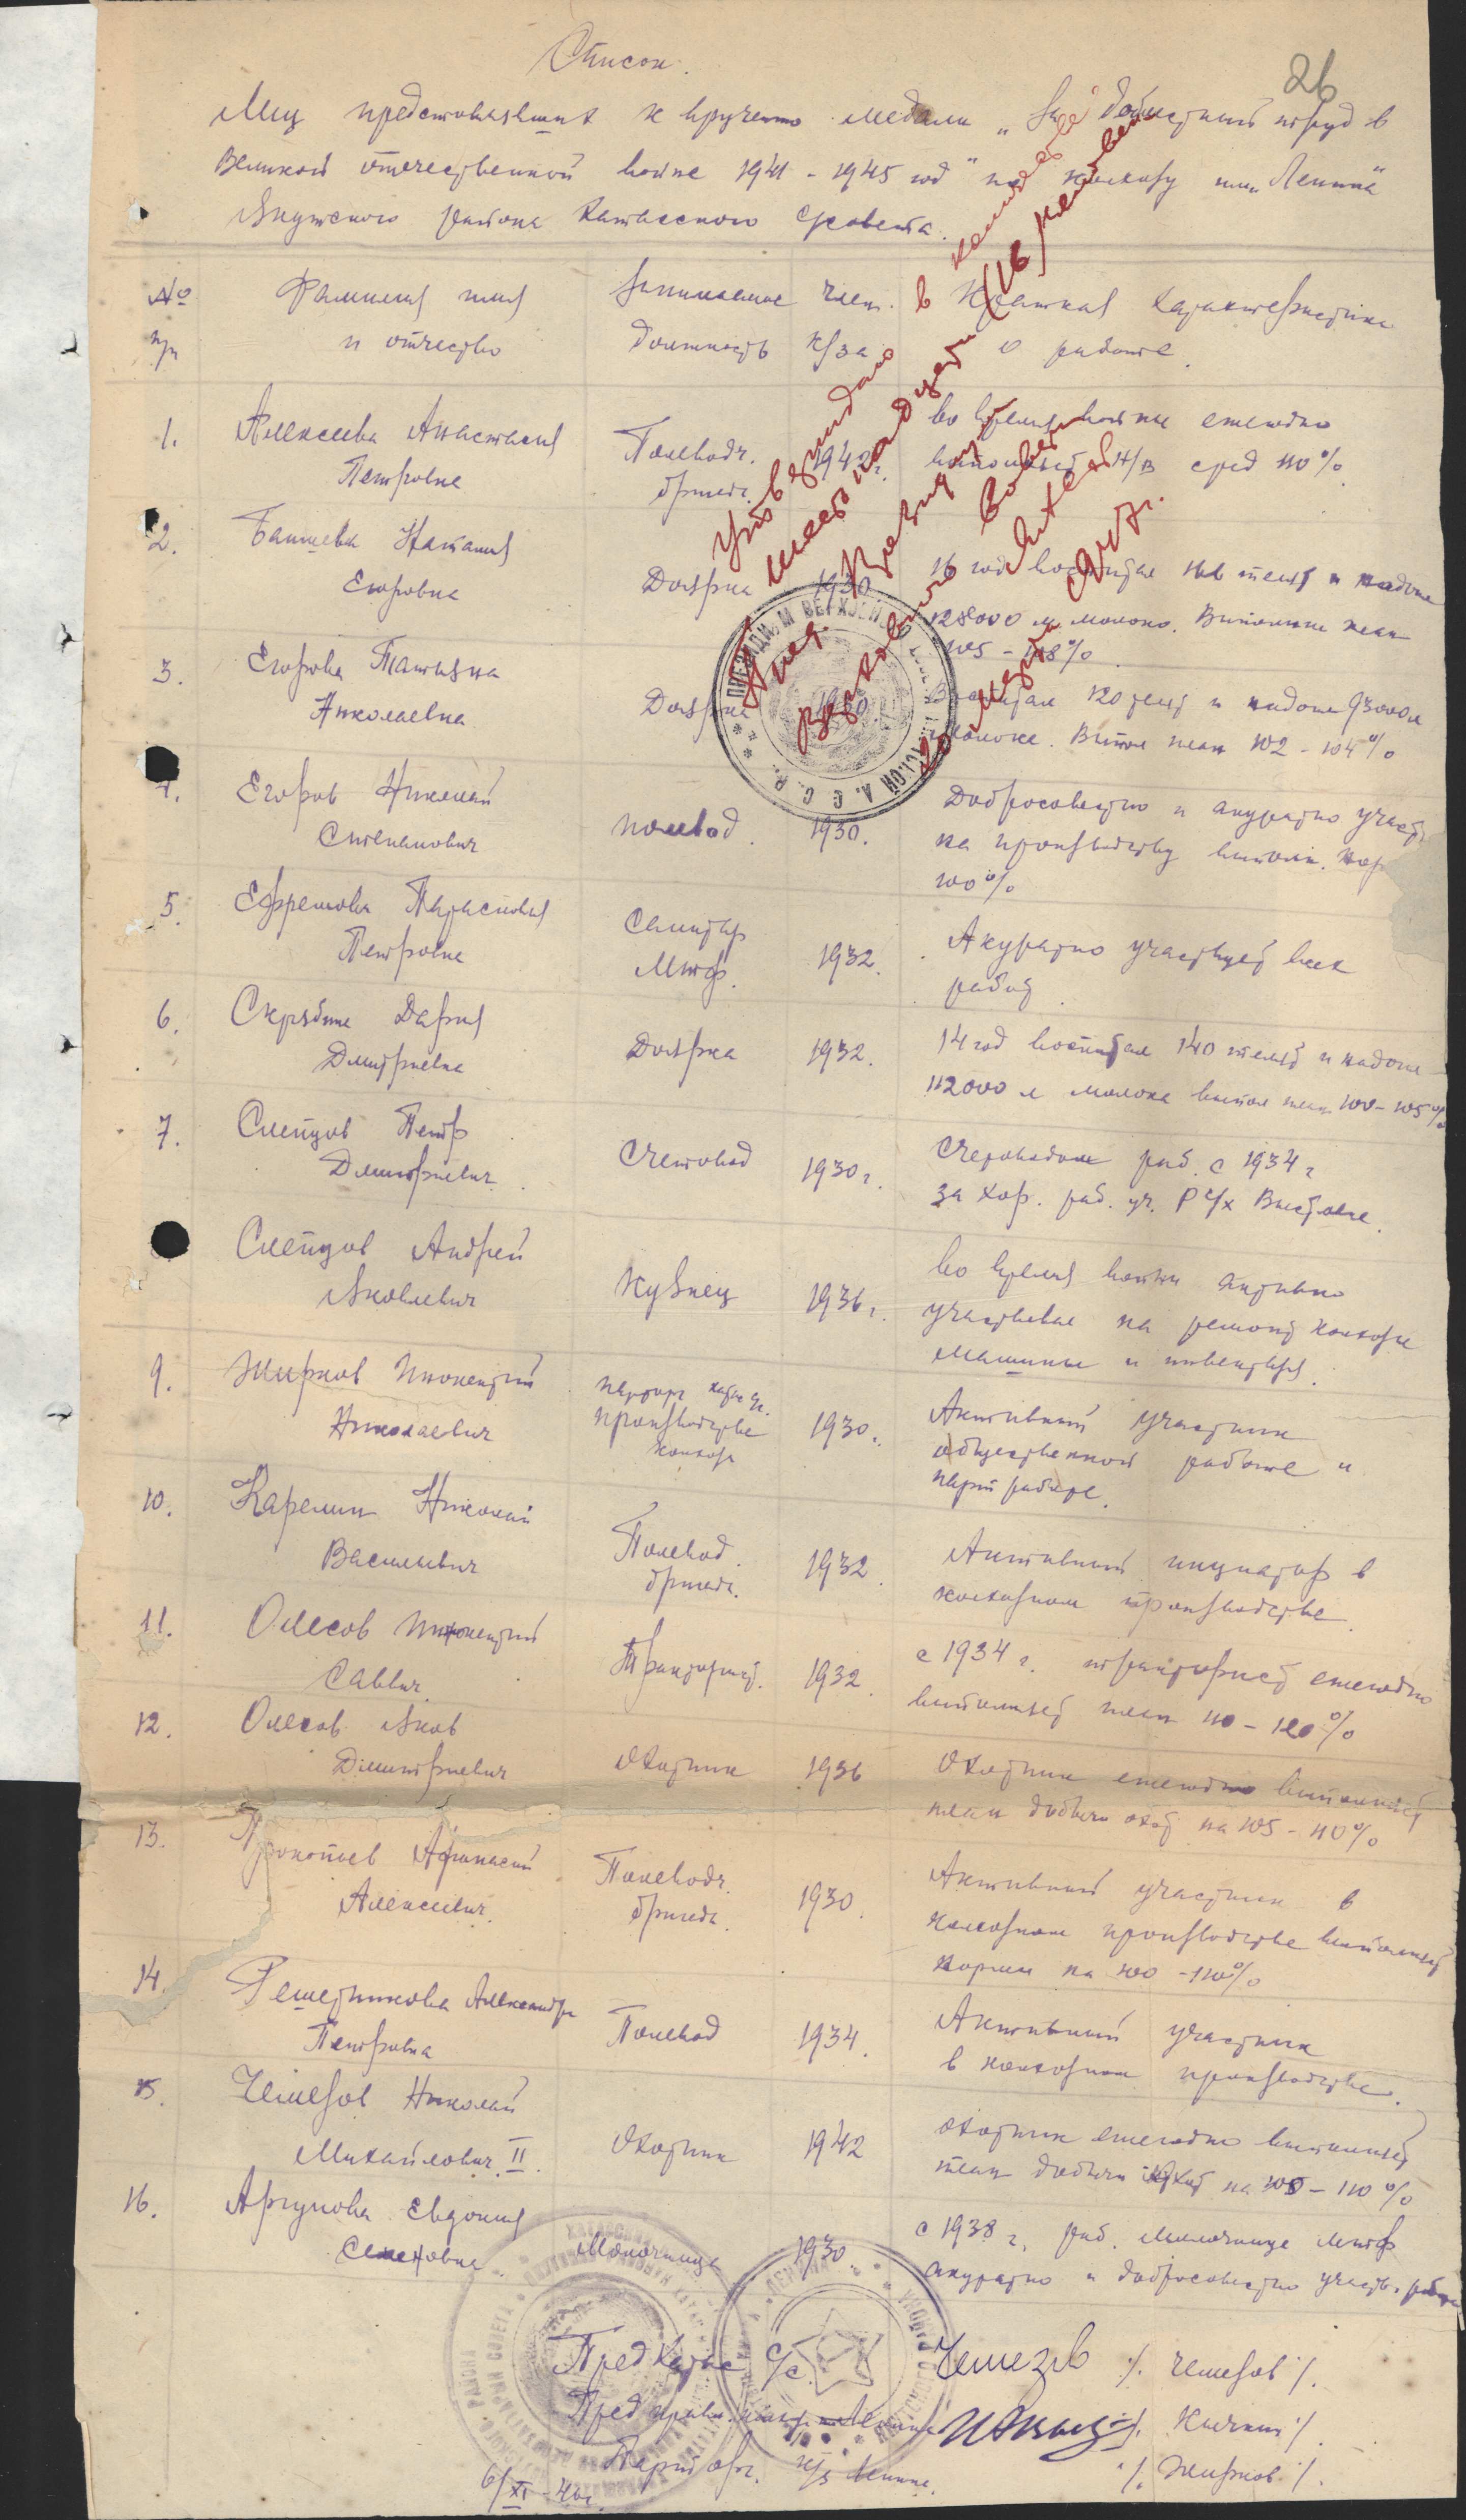 26
Список.
Лиц представляемых к вручению медали „За доблестный труд в
Великой отечественной войне 1941 - 1945 год" по колхозу им. Ленина
Якутского района Хатасского с/совета.
№ п/п
Фамилия имя и отчество
Занимаемая должность
Член. к/за
Краткая характеристика о работе.
Утверждаю в количестве
шестнадцати (16) человек
Пред. Президиума
Верховного Совета
20 марта 1947 г.
ПРЕЗИДИУМ ВЕРХОВНОГО А.С.С.Р.
1. Алексеева Анастасия Петровна
Полеводч. бригад.
1942 г.
во время войны ежегодно
выполняет н/в сред 110%
2. Баишева Наталия Егоровна
Доярка
1930
16 год воспитал 166 телят и надоила
128000 л молока. Выполнил план
105 - 108%
3. Егорова Татьяна Николаевна
Доярка
1930.
Воспитал 120 телят и надоил 93000 л
молока. Выпол план 102 - 104%
4. Егоров Николай Степанович
полевод.
1930.
Добросовестно и акуратно участ
на производству выполн. нор
100%
5. Ефремова Парасковья Петровна
Санитар Мтф.
1932.
Акуратно участвует всех
работ.
6. Скрябина Дария Дмитриевна
Доярка
1932.
14 год воспитал 140 телят и надоил
112000 л молока выпол план 100-105%
7. Слепцов Петр Дмитриевич.
Счетовод
1930 г.
Счетоводом раб. с 1934 г
за хор. раб. уч. Р с/х Выставке.
Слепцов Андрей Яковлевич
Кузнец
1936 г.
во время войны активно
участвовал на ремонт колхозн
машины и инвентаря.
9. Жирков Инокентий Николаевич
парторг
производстве
колхоза
1930 г.
Активный участник
общественной работе и
парт работе.
10. Карелин Николай Васильевич
Полевод. бригад.
1932.
Активный инциатор в
колхозном производстве.
11. Олесов Инокентий Саввич.
Тракторист.
1932.
с 1934 г. тракторист ежегодно
выполняет план 110 - 120%
12. Олесов Яков Дмитриевич
Охотник
1936
Охотник ежегодно выполняет
план добычи охот на 105 - 110%
13. Прокопьев Афанасий Алексеевич.
Полеводч. бригад.
1930.
Активный участник в
колхозном производстве выполняет
нормы на 100 - 110%
14. Решетникова Александра Петровна
Полевод
1934.
Активный участник
в колхозном производстве.
15. Чемезов Николай Михайлович II.
Охотник
1942
охотник ежегодно выполняет
план добычи охот на 105 - 110%
16. Аргунова Евдокия Семеновна.
Молочница
1930.
с 1938 г. раб. молочнице мтф
акуратно и добросовестно участв. работе
Пред Хатас с/с. Чемезов /. Чемезов /.
Пред прав. колх. им Ленина
Парт орг. к/з Ленина. /. Жирков /.
6/XI - 46 г.